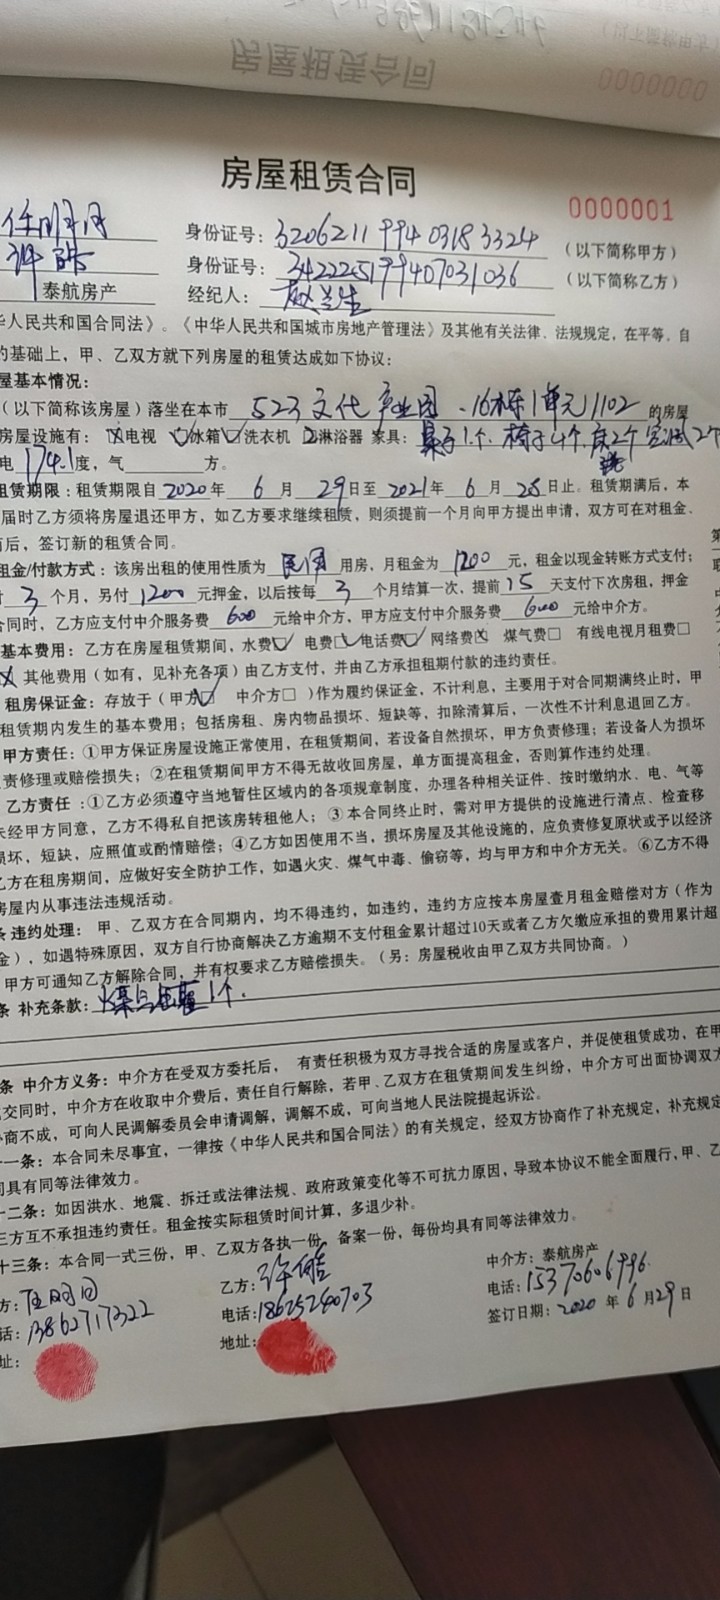 房屋租赁合同
0000001
身份证号：320621199403183324（以下简称甲方）
许皓 身份证号：342225199407031036（以下简称乙方）
泰航房产 经纪人：
华人民共和国合同法》。《中华人民共和国城市房地产管理法》及其他有关法律、法规规定，在平等、自
的基础上，甲、乙双方就下列房屋的租赁达成如下协议：
屋基本情况：
（以下简称该房屋）落坐在本市 523文化产业园、16栋1单元1102 的房屋
房屋设施有：☒电视 ☑冰箱 ☑洗衣机 ☑淋浴器 家具：桌子1个、椅子4个、床2个 空调2个
电 174.1 度，气 方。
租赁期限：租赁期限自 2020 年 6 月 29 日至 2021 年 6 月 28 日止。租赁期满后，本
届时乙方须将房屋退还甲方，如乙方要求继续租赁，则须提前一个月向甲方提出申请，双方可在对租金、
后，签订新的租赁合同。
租金/付款方式：该房出租的使用性质为 民用 用房，月租金为 1200 元，租金以现金转账方式支付；
付 3 个月，另付 1200 元押金，以后按每 3 个月结算一次，提前 15 天支付下次房租，押金
合同时，乙方应支付中介服务费 600 元给中介方，甲方应支付中介服务费 600 元给中介方。
基本费用：乙方在房屋租赁期间，水费☑ 电费☑ 电话费☑ 网络费☒ 煤气费□ 有线电视月租费□
其他费用（如有，见补充各项）由乙方支付，并由乙方承担租期付款的违约责任。
租房保证金：存放于（甲方☑ 中介方□）作为履约保证金，不计利息，主要用于对合同期满终止时，甲
租赁期内发生的基本费用；包括房租、房内物品损坏、短缺等，扣除清算后，一次性不计利息退回乙方。
甲方责任：①甲方保证房屋设施正常使用，在租赁期间，若设备自然损坏，甲方负责修理；若设备人为损坏
责修理或赔偿损失；②在租赁期间甲方不得无故收回房屋，单方面提高租金，否则算作违约处理。
乙方责任：①乙方必须遵守当地暂住区域内的各项规章制度，办理各种相关证件、按时缴纳水、电、气等
未经甲方同意，乙方不得私自把该房转租他人；③本合同终止时，需对甲方提供的设施进行清点、检查移
损坏，短缺，应照值或酌情赔偿；④乙方如因使用不当，损坏房屋及其他设施的，应负责修复原状或予以经济
乙方在租房期间，应做好安全防护工作，如遇火灾、煤气中毒、偷窃等，均与甲方和中介方无关。⑥乙方不得
房屋内从事违法违规活动。
条 违约处理：甲、乙双方在合同期内，均不得违约，如违约，违约方应按本房屋壹月租金赔偿对方（作为
金），如遇特殊原因，双方自行协商解决乙方逾期不支付租金累计超过10天或者乙方欠缴应承担的费用累计超
甲方可通知乙方解除合同，并有权要求乙方赔偿损失。（另：房屋税收由甲乙双方共同协商。）
条 补充条款：
条 中介方义务：中介方在受双方委托后，有责任积极为双方寻找合适的房屋或客户，并促使租赁成功，在甲
成交同时，中介方在收取中介费后，责任自行解除，若甲、乙双方在租赁期间发生纠纷，中介方可出面协调双方
协商不成，可向人民调解委员会申请调解，调解不成，可向当地人民法院提起诉讼。
十一条：本合同未尽事宜，一律按《中华人民共和国合同法》的有关规定，经双方协商作了补充规定，补充规定
同具有同等法律效力。
十二条：如因洪水、地震、拆迁或法律法规、政府政策变化等不可抗力原因，导致本协议不能全面履行，甲、乙
三方互不承担违约责任。租金按实际租赁时间计算，多退少补。
十三条：本合同一式三份，甲、乙双方各执一份，备案一份，每份均具有同等法律效力。
方： 乙方：许皓 中介方：泰航房产
话：13862717322 电话：18625240703 电话：15370606996
址： 地址： 签订日期：2020 年 6 月 29 日